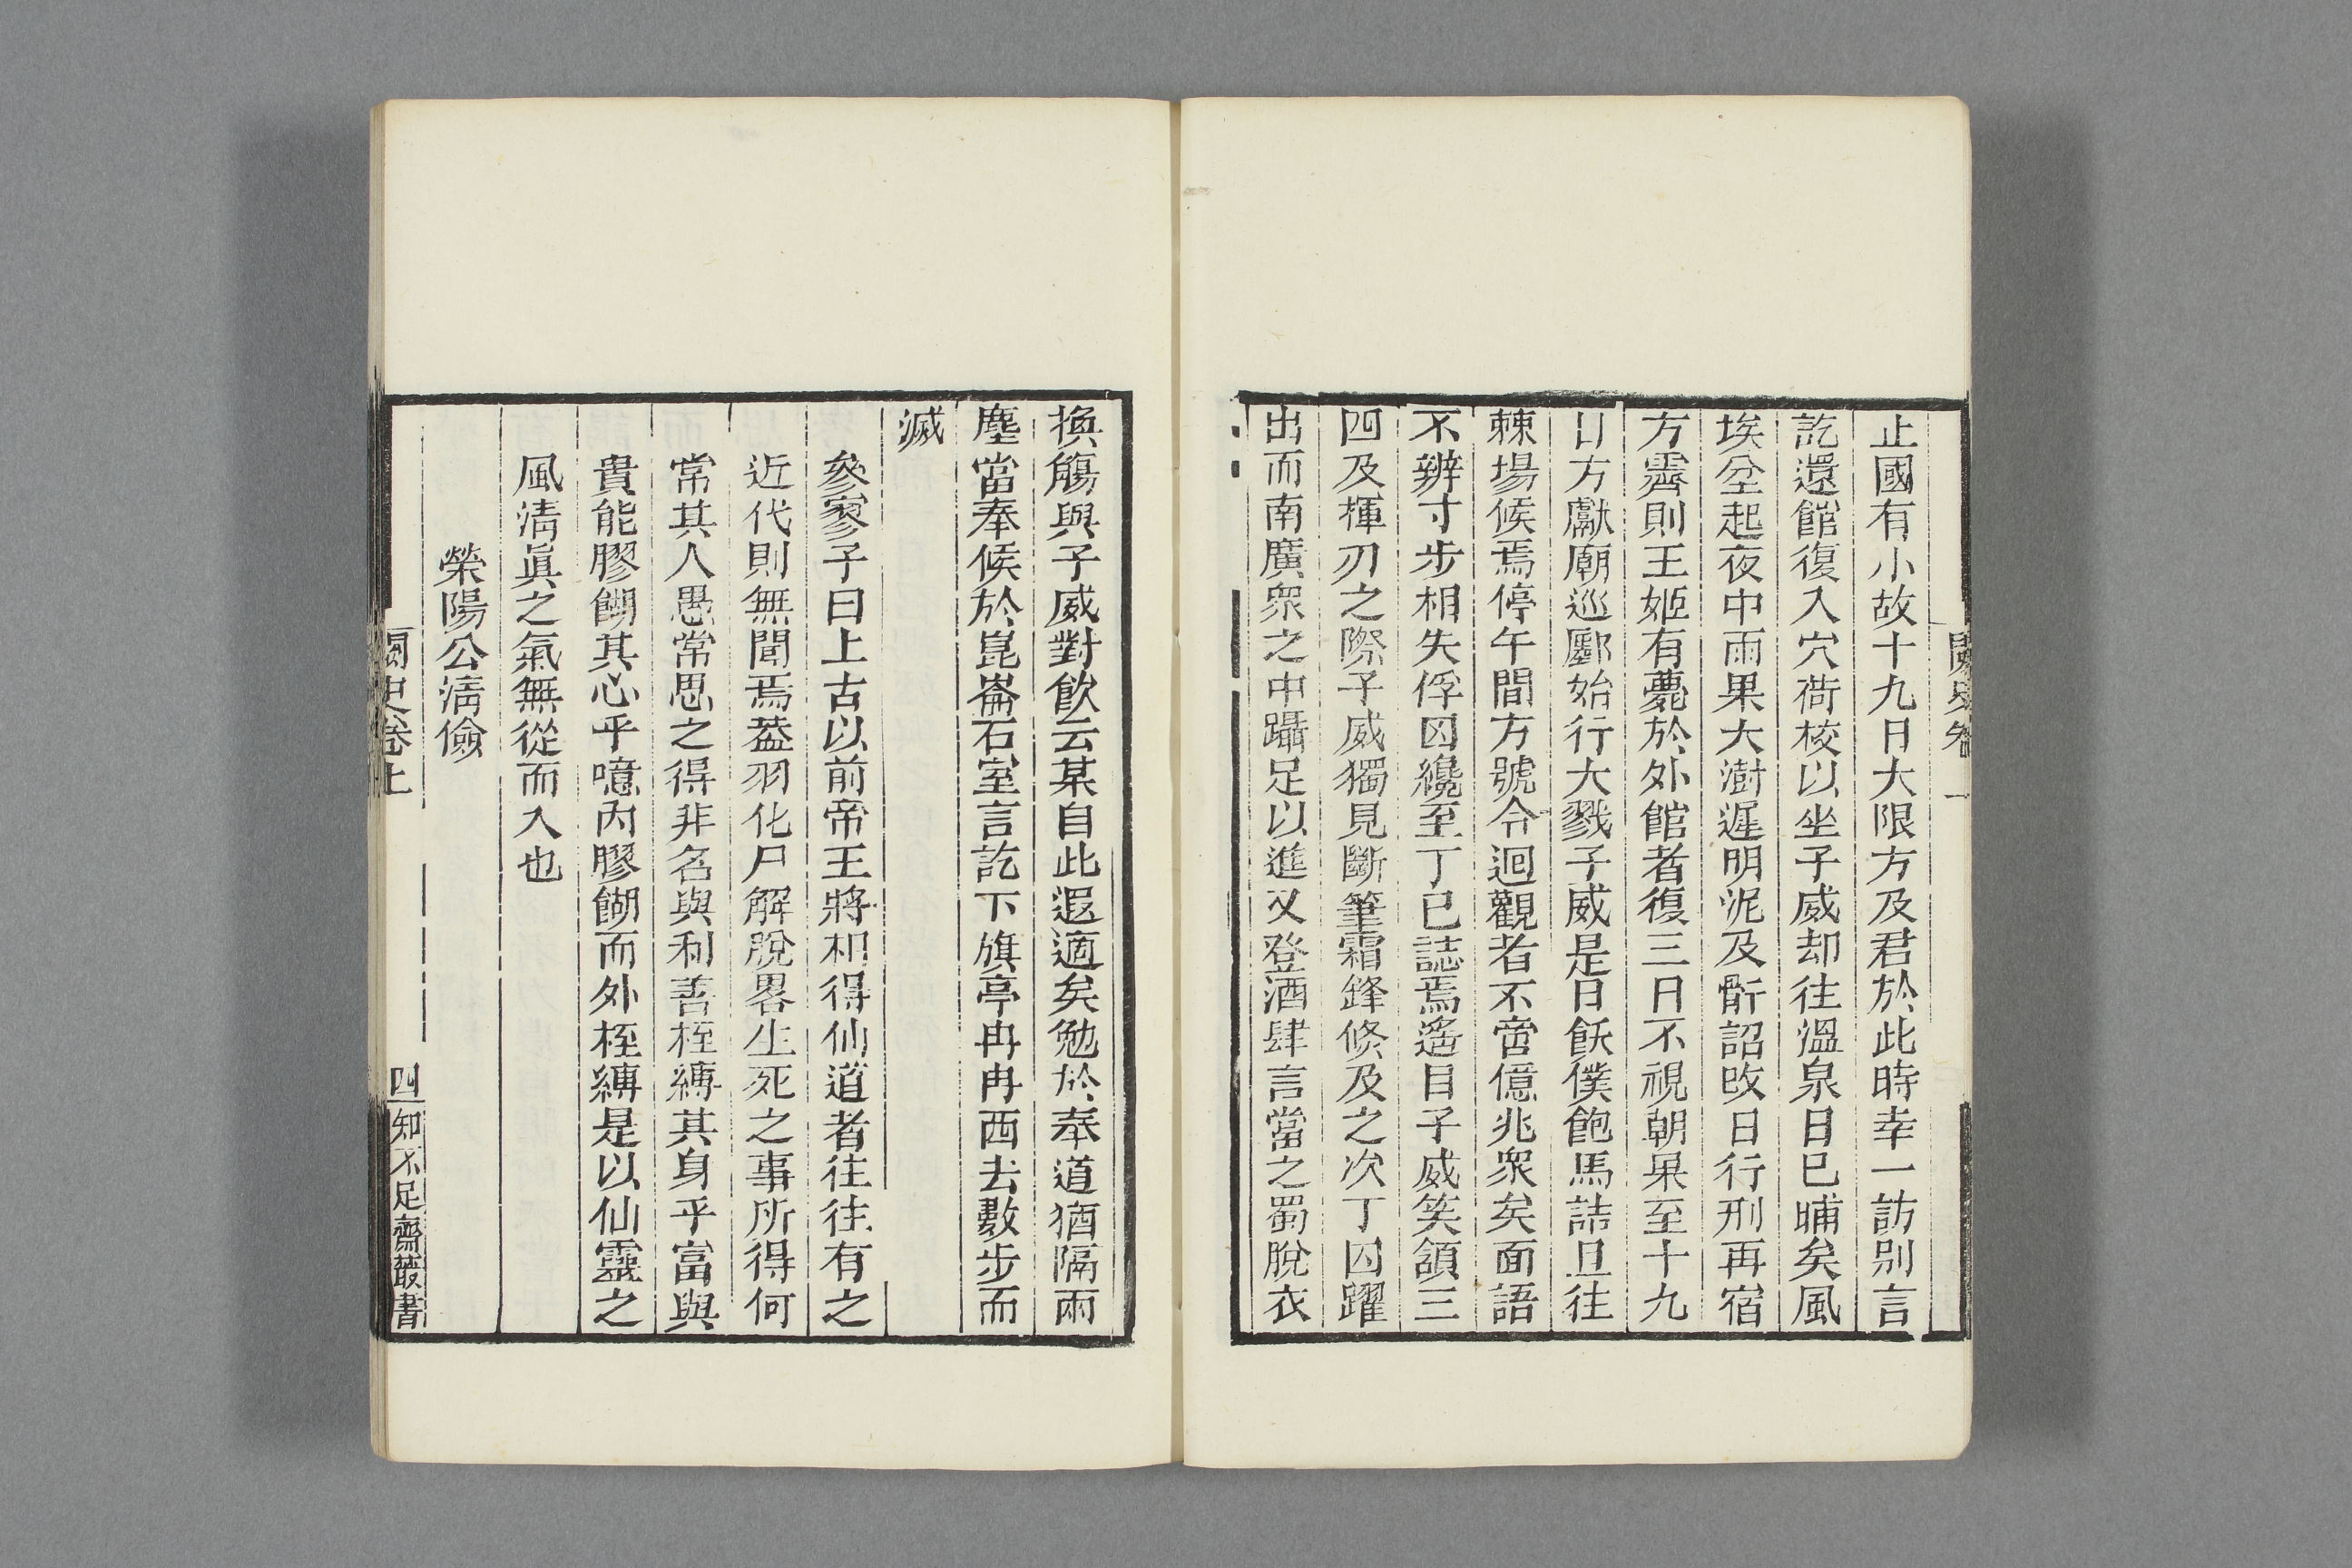 止國有小故十九日大限方及君於此時幸一訪别言
訖還館復入穴荷校以坐子威却往溫泉日已晡矣風
埃坌起夜中雨果大澍遲明泥及骭詔改日行刑再宿
方霽則王姬有薨於外館者復三日不視朝果至十九
日方獻廟巡鄽始行大戮子威是日飫僕飽馬詰旦往
棘場候焉停午間方號令迴觀者不啻億兆衆矣面語
不辨寸步相失俘囚纔至丁已誌焉遙目子威笑頷三
四及揮刃之際子威獨見斷筆霜鋒倏及之次丁囚躍
出而南廣衆之中躡足以進又登酒肆言當之蜀脫衣
換觴與子威對飲云某自此遐適矣勉於奉道猶隔兩
塵當奉候於崑崙石室言訖下旗亭冉冉西去數步而
滅
參寥子曰上古以前帝王將相得仙道者往往有之
近代則無聞焉葢羽化尸解脫畧生死之事所得何
常其人愚常思之得非名與利善桎縛其身乎富與
貴能膠餬其心乎噫内膠餬而外桎縛是以仙靈之
風淸眞之氣無從而入也
榮陽公淸儉
闕史卷上
四
知不足齋叢書